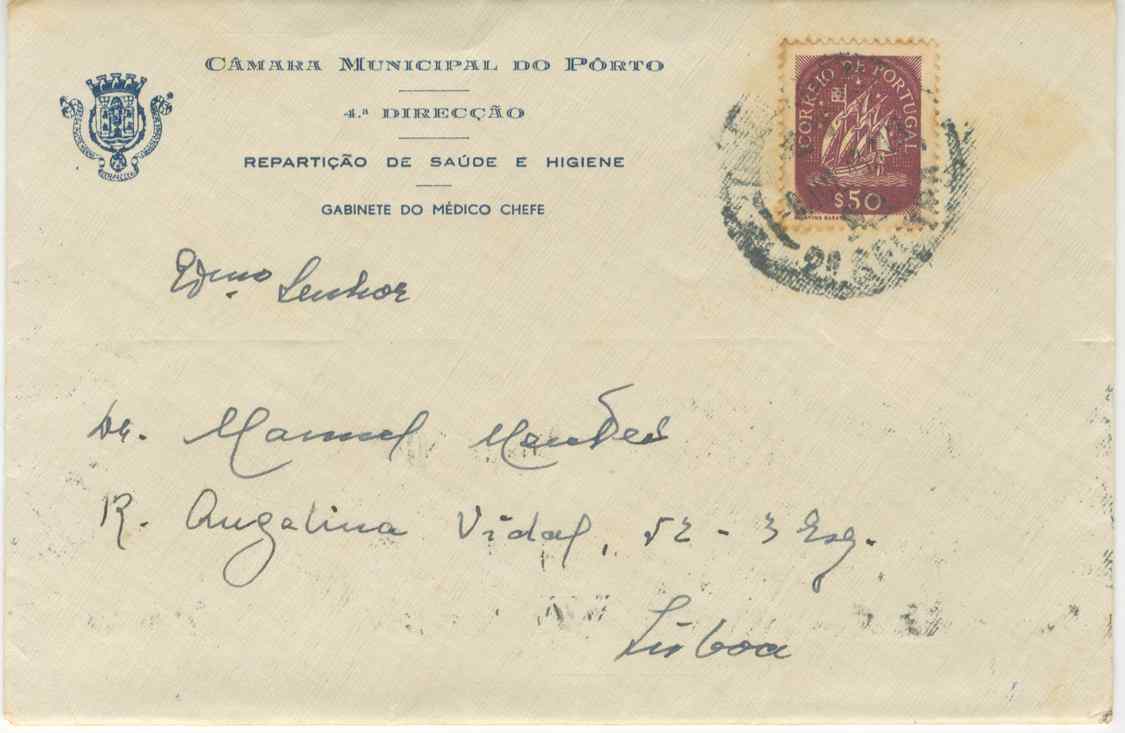 CÂMARA MUNICIPAL DO PÔRTO
4.ª DIRECÇÃO
REPARTIÇÃO DE SAÚDE E HIGIENE
GABINETE DO MÉDICO CHEFE
CORREIO DE PORTUGAL
$50
Exmo Senhor
Dr. Manuel Mendes
R. Angelina Vidal, 52 - 3 Esq.
Lisboa